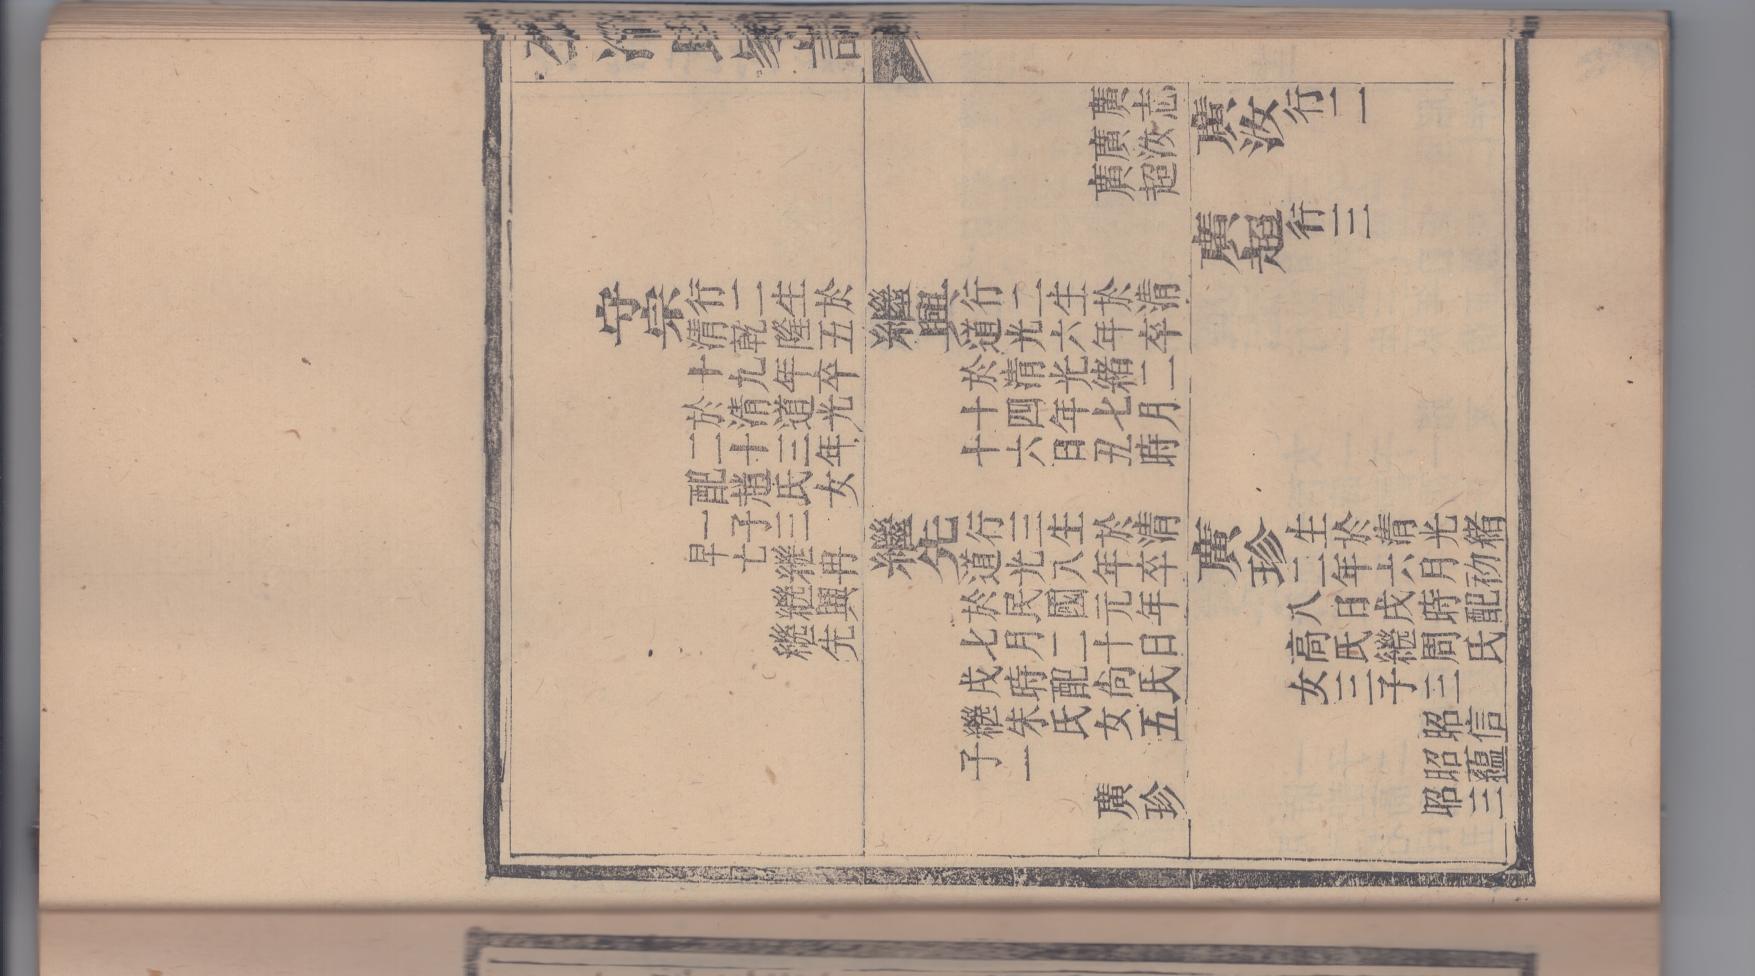 氏家譜
守宗 行二生於
清乾隆五
十九年卒
於清道光
二十三年
配趙氏女
一子三
早亡 繼冉
繼興
繼先
廣志
廣汝
廣超
繼興 行二生於清
道光六年卒
於清光緒二
十四年七月
十六日丑時
繼先 行三生於清
道光八年卒
於民國元年
七月二十日
戌時配尚氏
繼朱氏女五
子一
廣珍
廣汝 行二
廣超 行三
廣珍 生於清光緒
二年六月初
八日戌時配
高氏繼周氏
女三子三
昭信
昭蘊
昭三